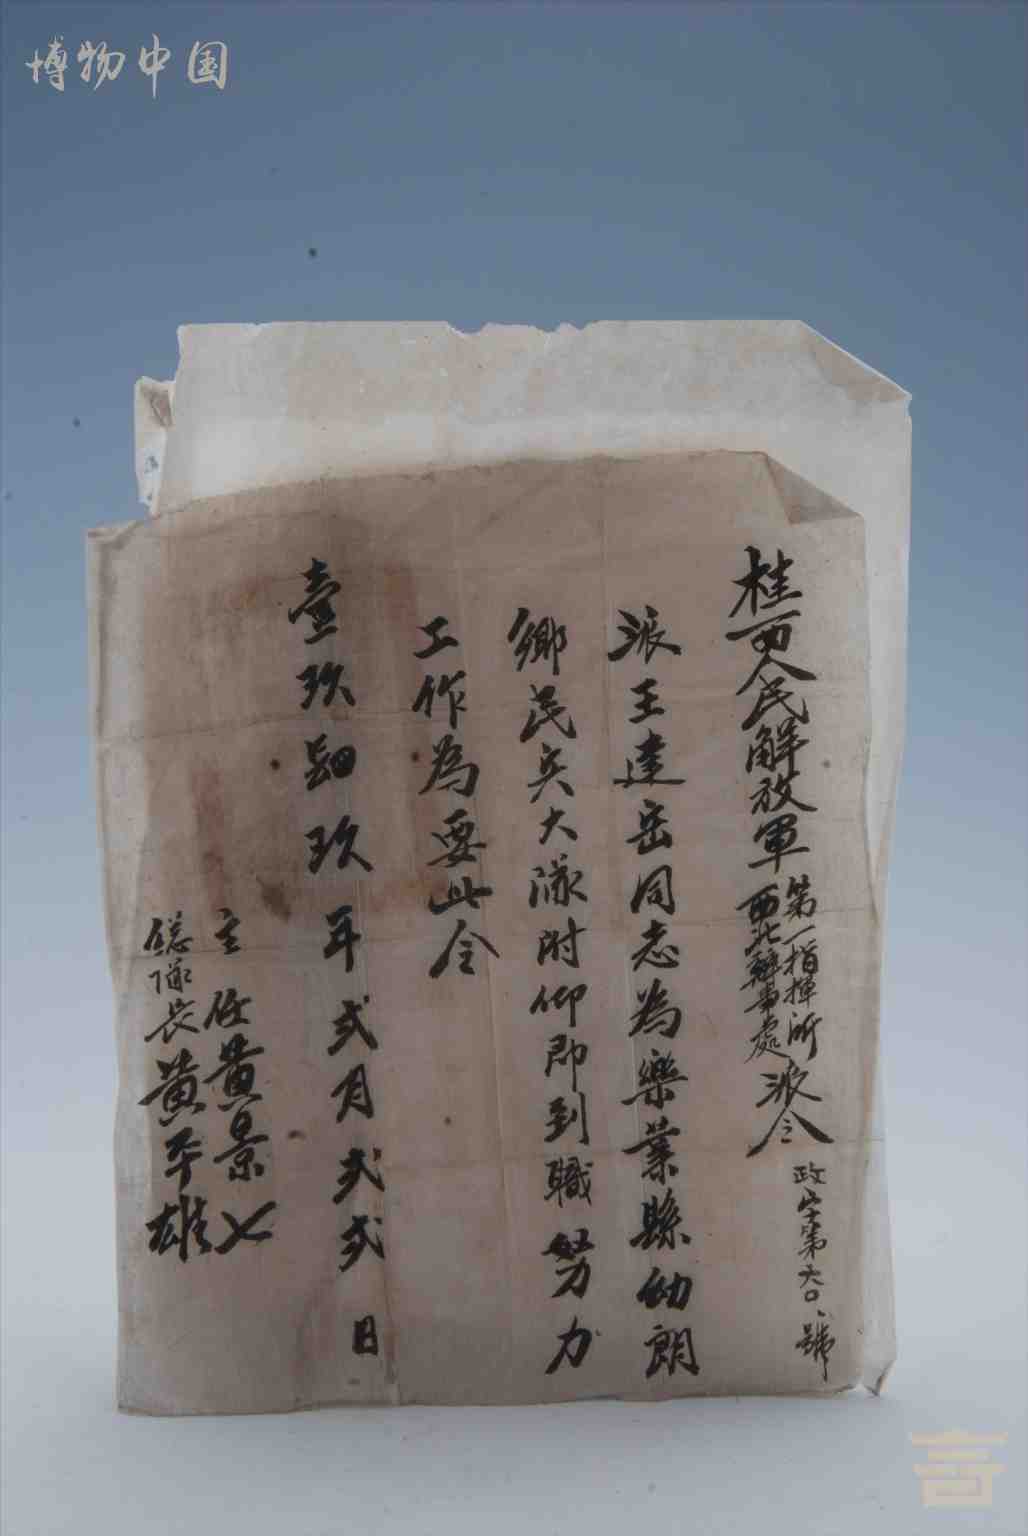 博物中国
桂西人民解放軍第一指揮所西北辦事處派令 政字第六〇號
派王達岳同志為樂業縣幼朗
鄉民兵大隊附仰即到職努力
工作為要此令
壹玖肆玖年弍月弍弍日
主任黃景七
總隊長黃平雄